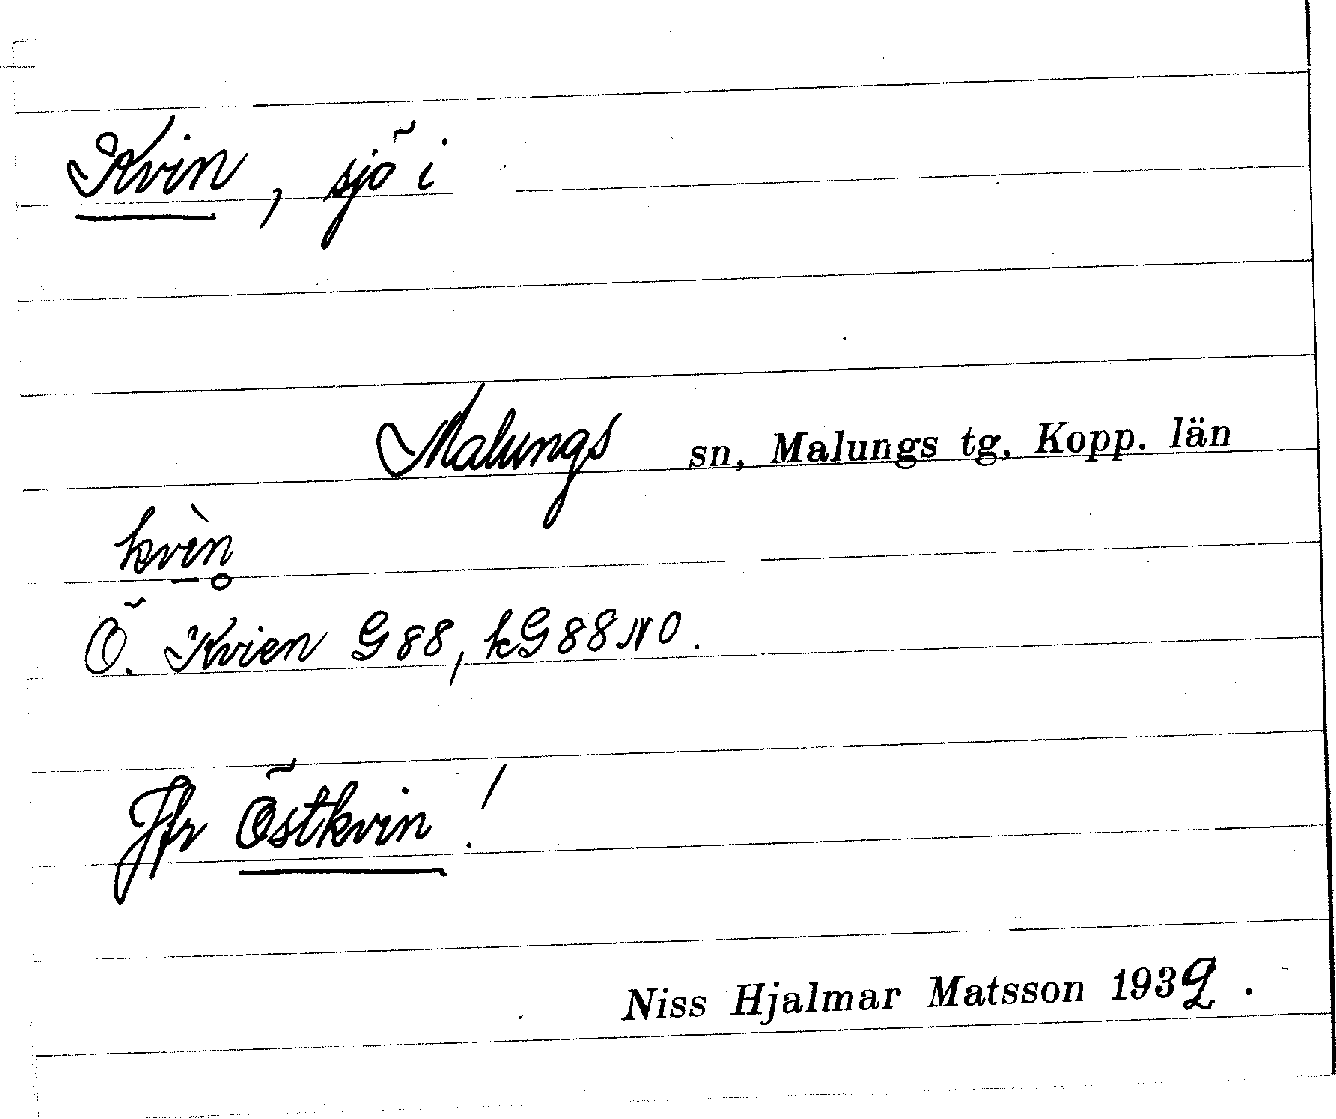 Kvin, sjö i
Malungs sn, Malungs tg, Kopp. län
kvìn̥
Ö. Kvien G88, kG88NO.
Jfr Östkvin!
Niss Hjalmar Matsson 1932.